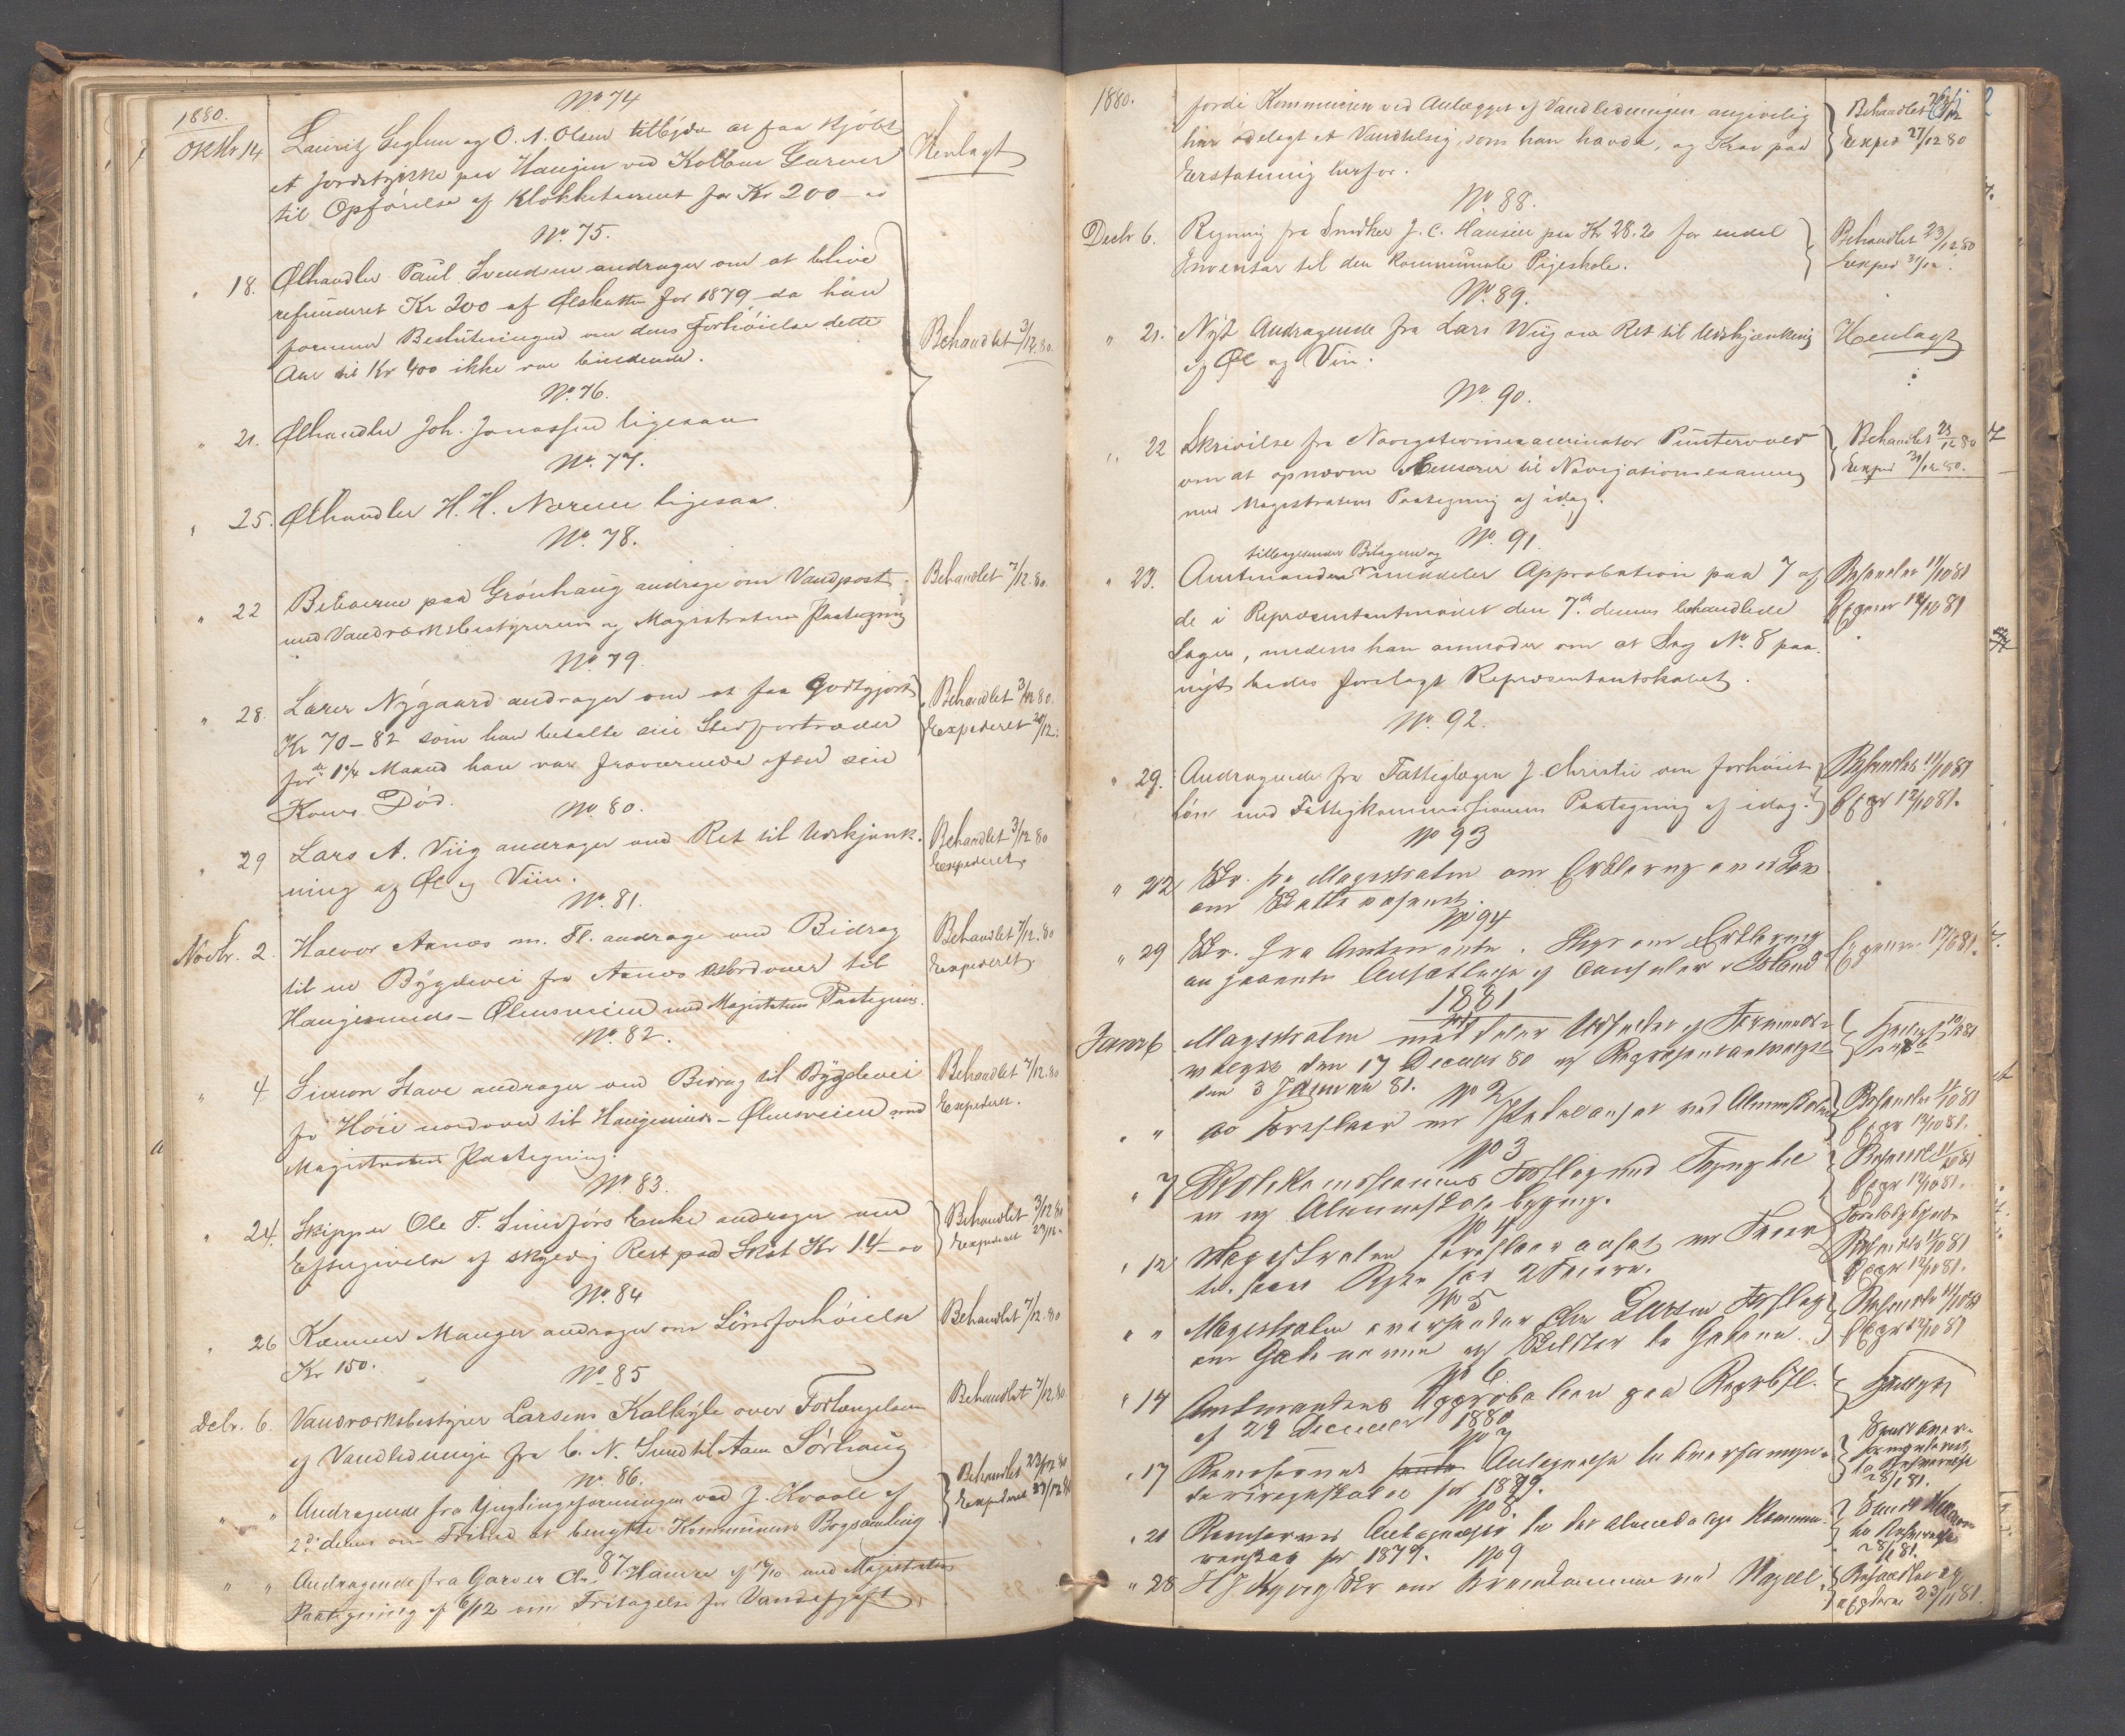 1880.
No 74
Oktbr 14 Lauritz Seglem og O. A. Olsen tilbyder at faa kjøbt Henlagt
et Jordstykke paa Haugen ved Garver
til Opførelse af Klokketaarnet for Kr 200 -
No. 75.
" 18. Ølhandler Paul Svendsen andrager om at blive
refunderet Kr 200 af Ølskatten for 1879 da han
formener Beslutningen om dens Forhøielse dette
Aar til Kr 400 ikke var bindende. Behandlet 3/12.80.
No. 76.
" 21. Ølhandler Joh. Jonassen ligesaa
No. 77.
" 25. Ølhandler H. H. Norem ligesaa.
No. 78.
" 22 Beboerne paa Grønhaug andrage om Vandpost. Behandlet 7/12.80.
med Vandværksbestyrerens og Magistratens Paategning
No 79.
" 28. Lærer Nygaard andrager om at faa godtgjort Behandlet 3/12 80.
Kr 70-82 som han betalte sin Stedfortræder Expederet 20/12.
for de 1 1/4 Maaned han var fraværende ved sin
Kones Død.
No. 80.
" 29 Lars A. Viig andrager om Ret til Udskjænk- Behandlet 3/12.80
ning af Øl og Viin. Expederet.
No. 81.
Novbr. 2. Halvor Aanæs m. Fl. andrage om Bidrag Behandlet 7/12.80
til en Bygdevei fra Aanæs nordover til Expederet.
Haugesunds-Ølensveien med Magistratens Paategning.
No. 82.
" 4. Simon Stave andrager om Bidrag til Bygdevei Behandlet 7/12.80
fra Høie nordover til Haugesunds-Ølensveien med Expederet.
Magistratens Paategning.
No. 83.
" 24. Skipper Ole T. Enke andrager om Behandlet 3/12 80
Eftergivelse af skyldig Rest paa Skat Kr 14- Expederet
No. 84
" 26 Kæmner Mauger andrager om Lønsforhøielse Behandlet 7/12.80
Kr 150.
No. 85
Decbr. 6. Vandværksbestyrer Larsens Kalkyle over Forlængelsen Behandlet 7/12.80.
af Vandledningen fra C. N. Sund til Aam Sørhaug
No. 86.
" " Andragende fra Ynglingeforeningen ved J. Kvaale af Behandlet 23/12 80
2d dennes om Frihed at benytte Kommunens Bogsamling Expederet
87.
" " Andragende fra Garver Chr. Hansen af med Magistratens
Paategning af 6/12 om Fritagelse for Vandafgift,
1880.
fordi Kommunen ved Anlægget af Vandledningen angivelig Behandlet 23/12
har ødelagt et Vandtilsig, som han havde, og Krav paa Exped 27/12 80
Erstatning herfor.
No. 88.
Decbr 6. Regning fra Snedker J. C. Hansen paa Kr 28.20 for endel Behandlet 23/12 80
Inventar til den kommunale Pigeskole. Exped 31/12.
No. 89.
" 21. Nyt Andragende fra Lars Wiig om Ret til Udskjænkning Henlagt
af Øl og Vin.
No. 90.
" 22 Skrivelse fra Navigationsexaminator Pintervold Behandlet 23/12 80
om at opnævne Censorer til Navigationsexamen Exped 30/12.80.
med Magistratens Paategning af idag.
No. 91.
tilbagesender Bilagene og
" 23. Amtmanden meddeler Approbation paa 7 af Behandlet 11/10 81
de i Repræsentantmødet den 7de dennes behandlede Exped 12/10 81
Sager, medens han anmoder om at Sag No. 8 paa-
nyt bedes forelagt Repræsentantskabet.
No. 92.
" 29. Andragende fra Fattiglægen J. Christie om forhøiet Behandlet 11/10 81
Løn med Fattigkommissionens Paategning af idag. Exp 12/10 81.
No 93
" 22 Skr. fra Magistraten om Erklæring
om Skattevæsenet.
No 94
" 29 Skr. fra Amtmanden. om Erklæring
angaaende Ansættelse af Consuler i Island
1881
Januar 6 Magistraten meddeler Udfaldet af Formands-
valget den 17 December 80 og Repræsentantvalget
den 3 Januar 81.
No 2
" " do foreslaar en ansat ved Almueskolen Behandlet 11/10 81
Exp 12/10 81.
No 3
" 7 Skolekommissionens Forslag med Tegning til Behandlet 11/10 81
en ny Almueskolebygning. Exp 12/10 81.
No 4
" 12 Magistraten foreslaar ansat en Feier Behandlet 11/10 81
Exp 12/10 81.
No 5
" " Magistraten oversender Chr Larsens Forslag Behandlet 11/10 81
om Gadenavne og Skilter til Gaderne. Exp 12/10 81
No 6
" 14 Amtmandens Approbation paa
af 29 December 1880
No 7
" 17 Revisionens Antegnelser til
for 1879.
No 8
" 21 Revisionens Antegnelser til det
for 1879.
No 9
" 28 Skr om Branddammen ved Behandlet og